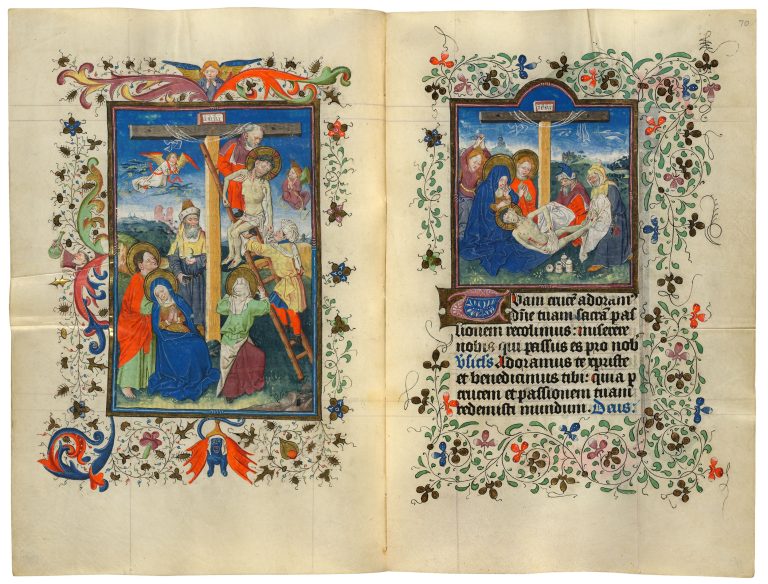 70
inri
inri
Tuam crucē adoram⁹
dn̄e tuam sacrā pas
sionem recolimus: miserere
nobis qui passus es pro nob
Adoramus te xpriste
et benedicimus tibi: quia p
crucem et passionem tuam
redemisti mundum. Deus: